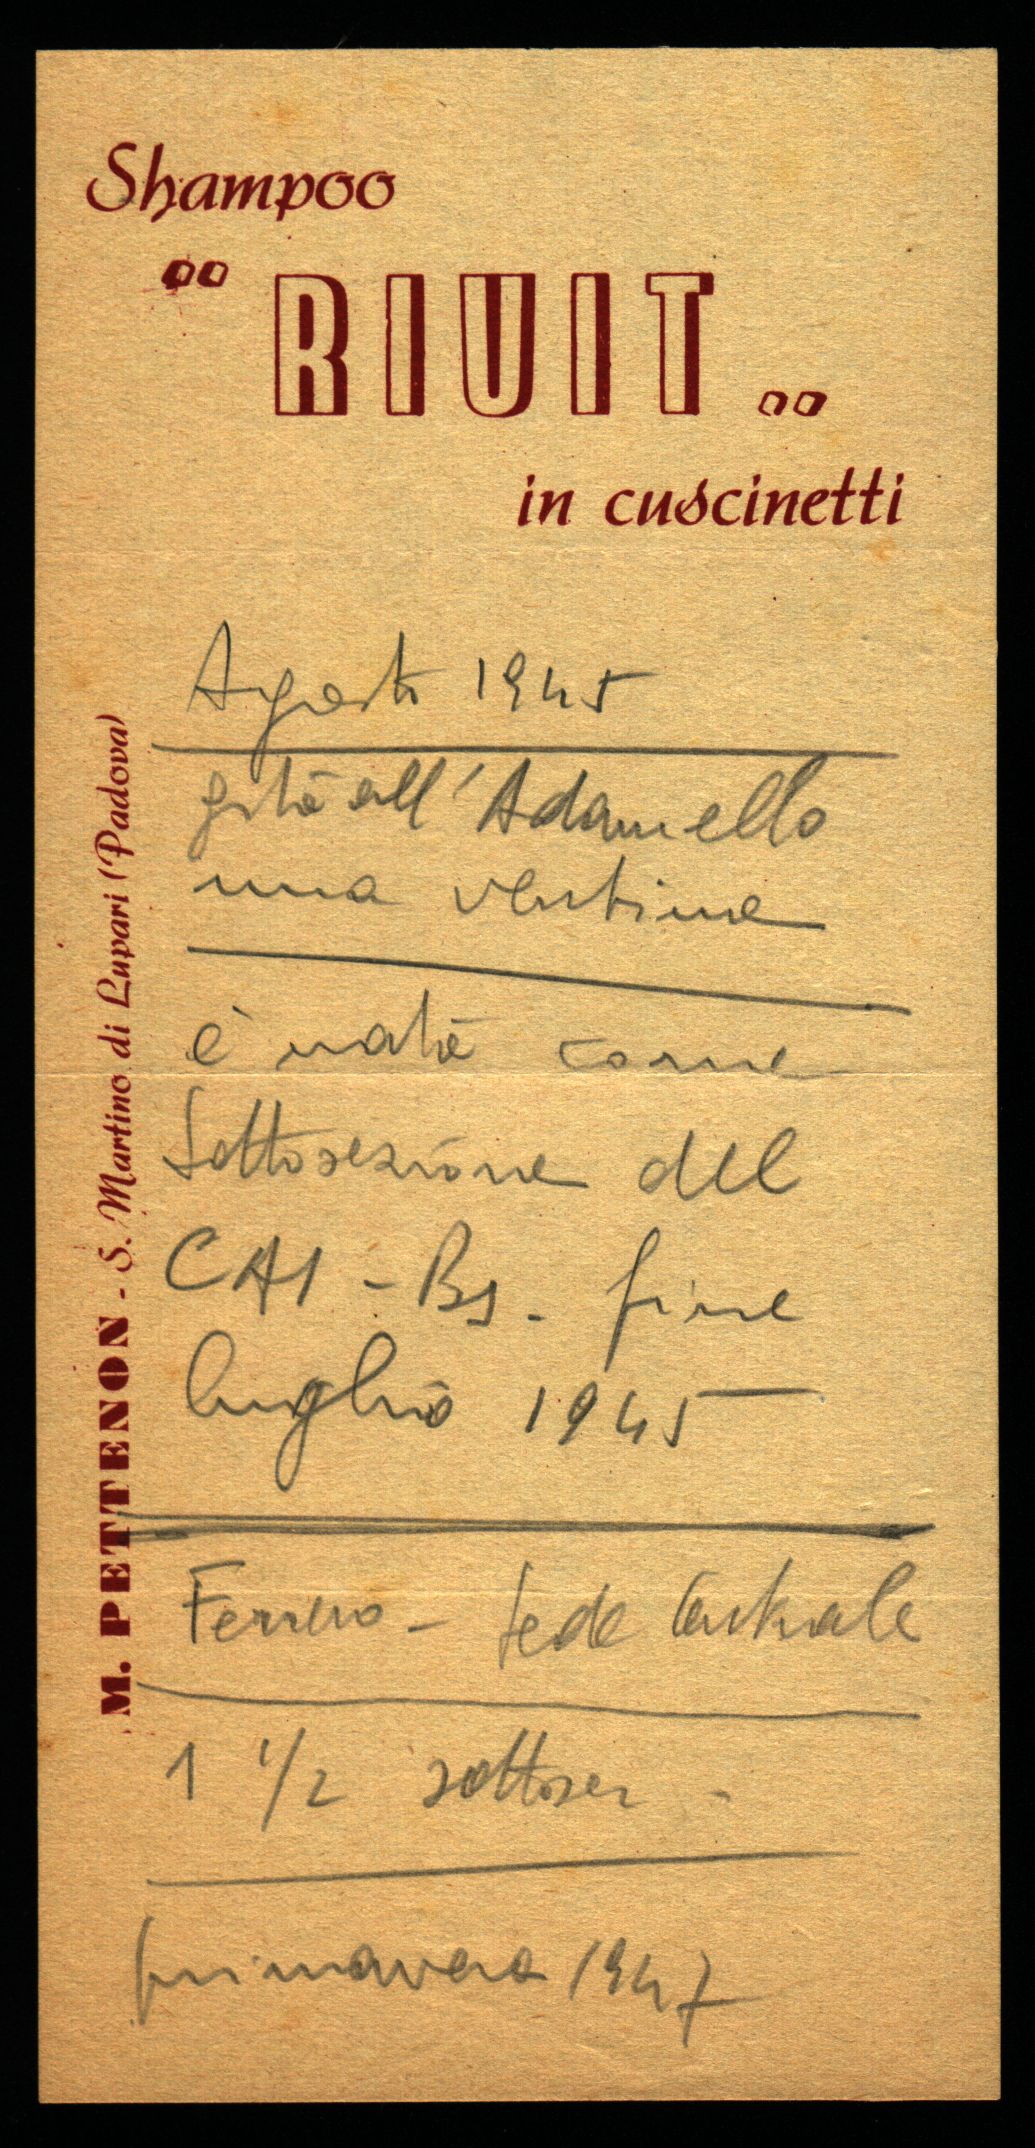 Shampoo
"RIUIT"
in cuscinetti
M. PETTENON - S. Martino di Lupari (Padova)
Agosto 1945
gita all'Adamello
una ventina
è nata come
Sottosezione del
CAI - Bs - fine
luglio 1945
Ferrero - Sede Centrale
1 1/2 sottosez -
primavera 1947